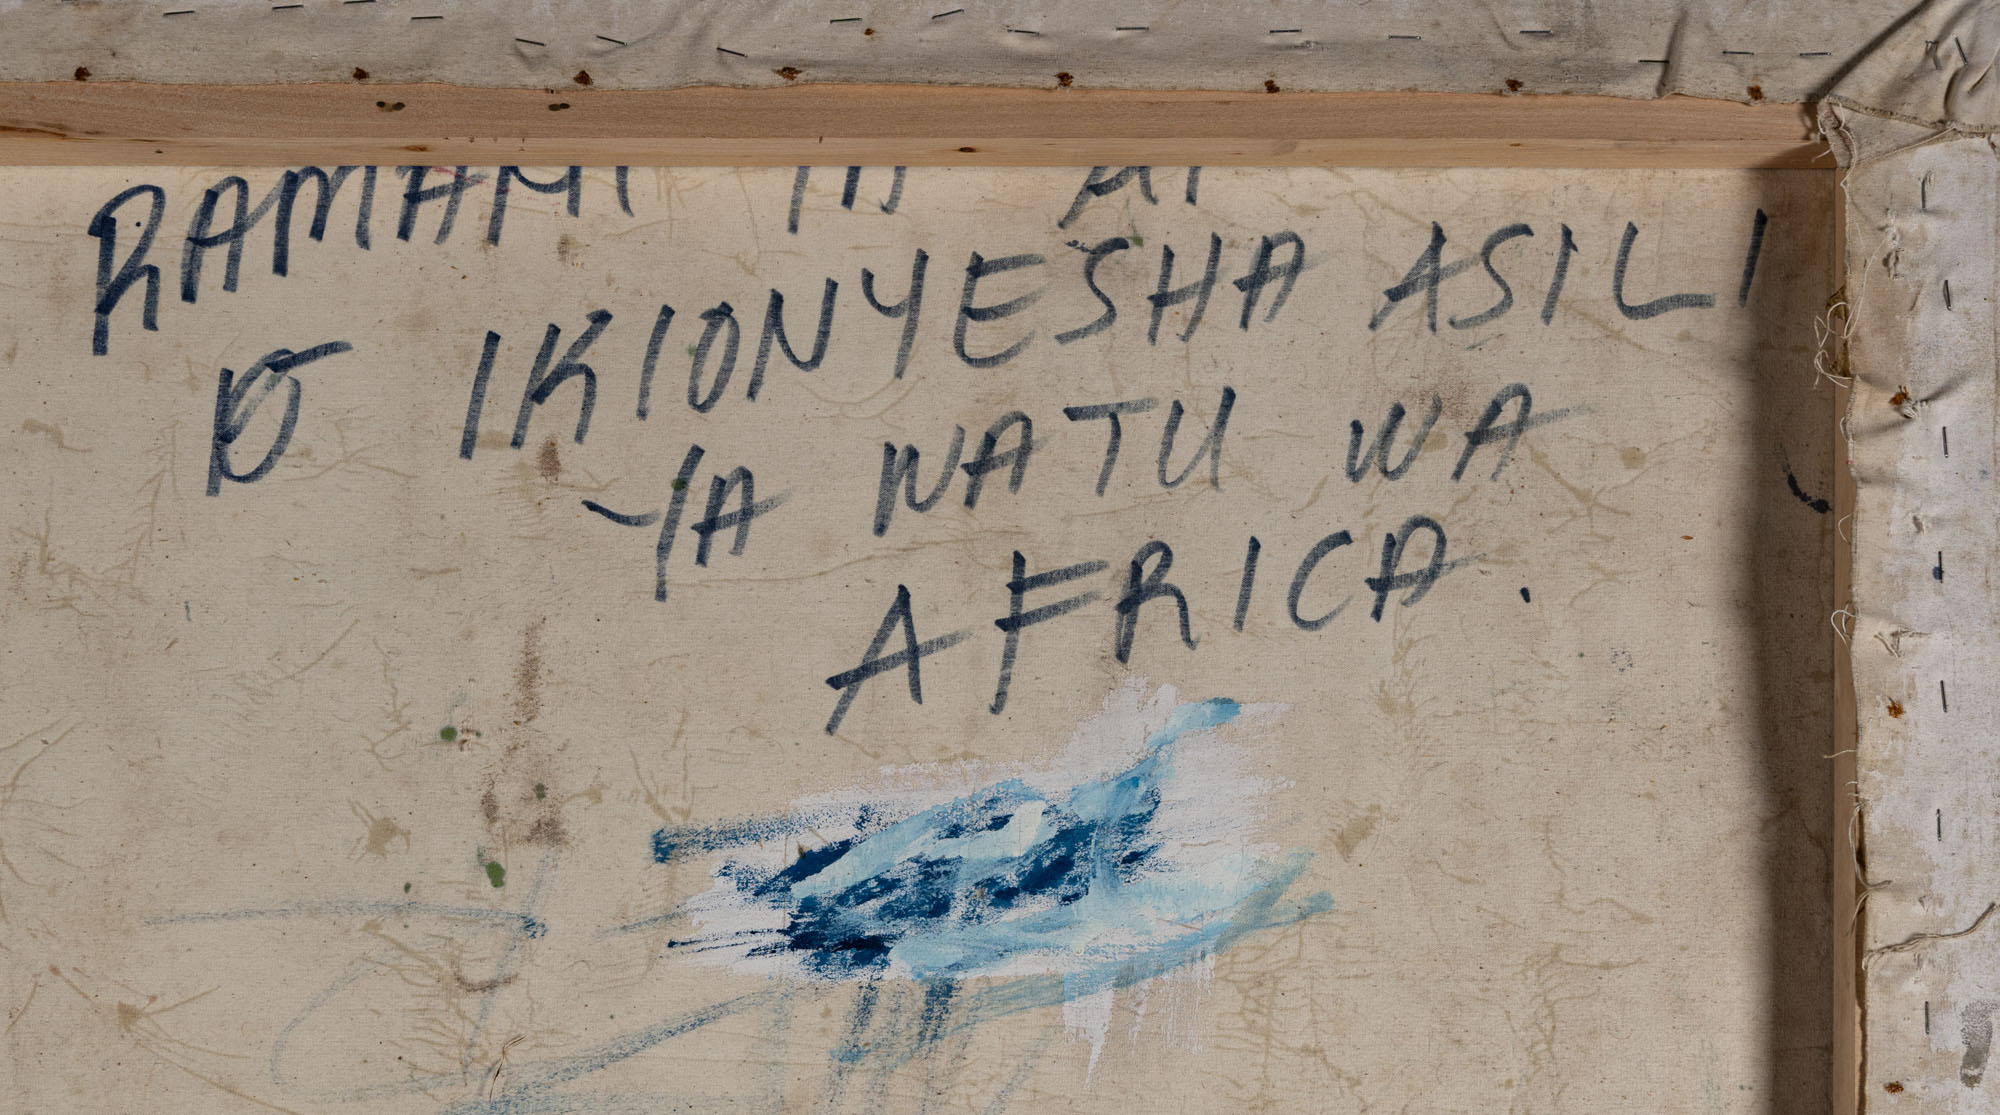 RAMANI
IKIONYESHA ASILI
YA WATU WA
AFRICA.